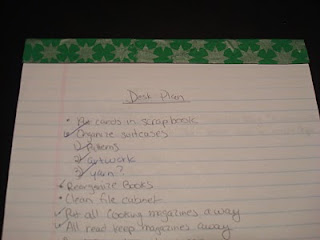 Desk Plan
• Put cards in scrapbook
Organize suitcases
1) Patterns
2) artwork
3) yarn?
• Reorganize Books
• Clean file cabinet
Put all Cooking magazines away
All need keep magazines away